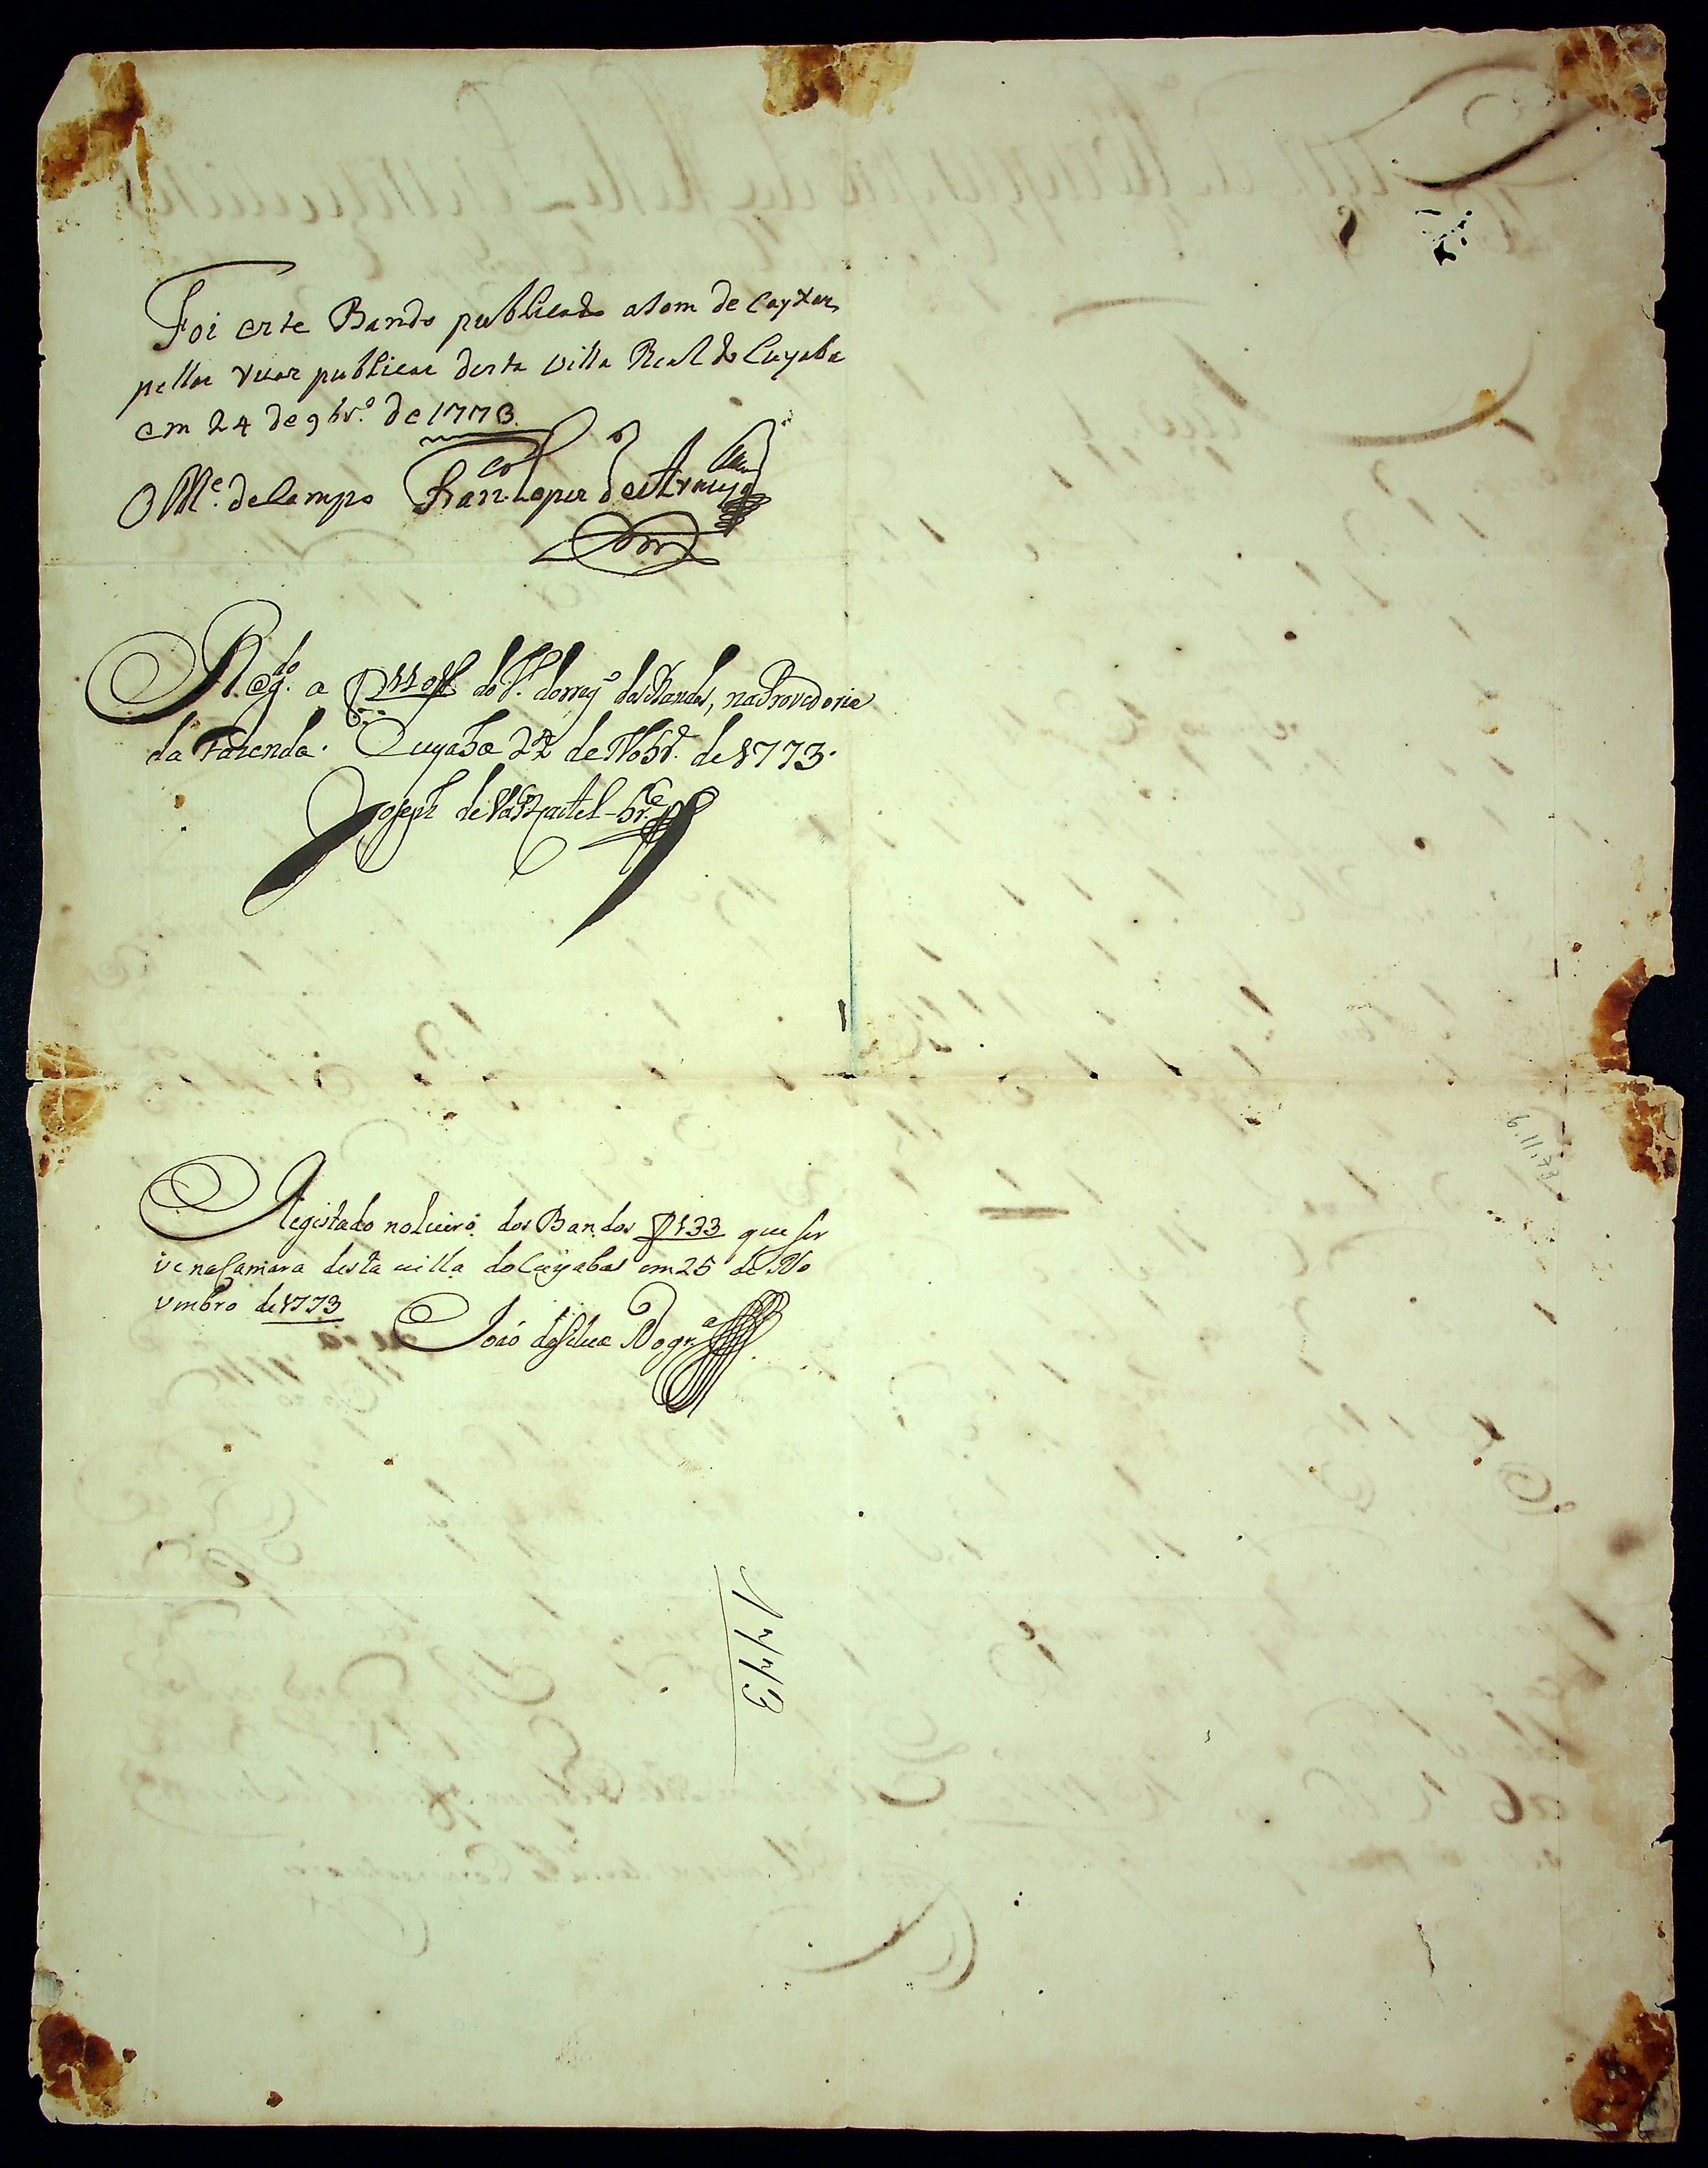 Foi este Bando publicado a som de Cayxas
pellas ruas publicas desta villa Real do Cuyaba
em 24 de 9br.º de 1773.
O M.e de Campo Fran.co Lopes de Araujo
Reg.do a f 110 do L.º do reg.º dos Bandos, na Provedoria
da Fazenda. Cuyabá 24 de Nobr.º de 1773.
Joseph de
Registado no Liuro dos Bandos f 133 que ser
ve na Camara desta uilla do Cuyaba em 25 de No
vembro de 1773
João da Silua Nogr.a
1773
6.11.73